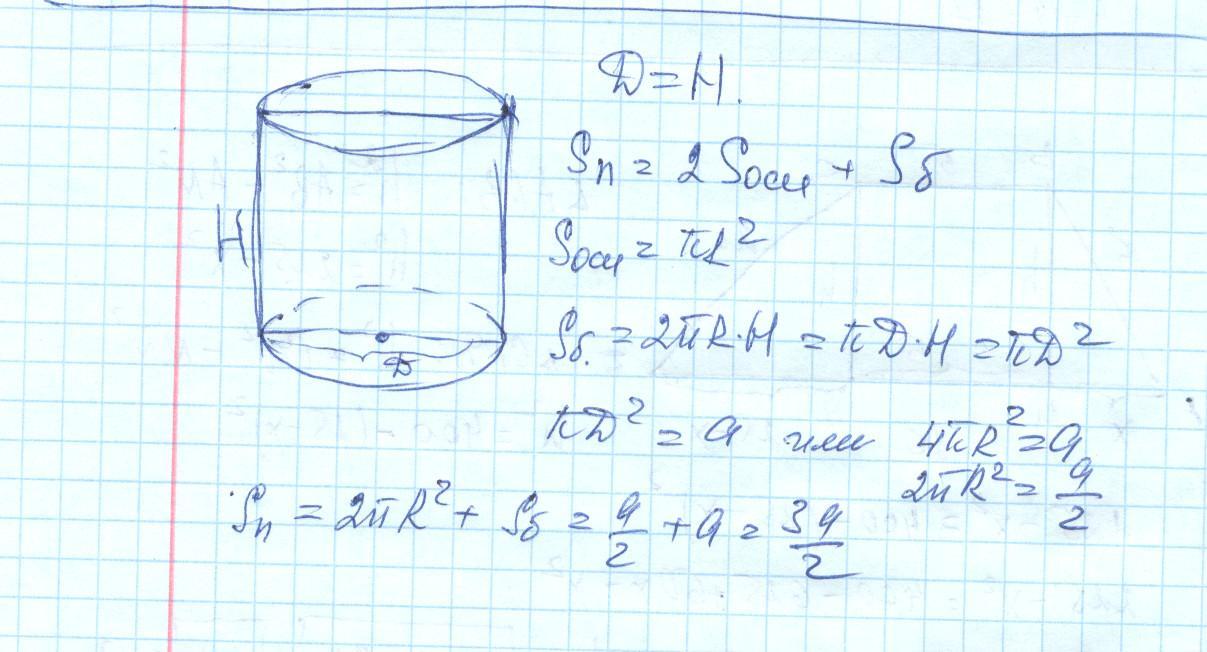 D = H.
Sп = 2 Sосн + Sб
H
Sосн = πR²
Sб. = 2πR·H = πD·H = πD²
D
πD² = a или 4πR² = a
2πR² = a/2
Sп = 2πR² + Sб = a/2 + a = 3a/2